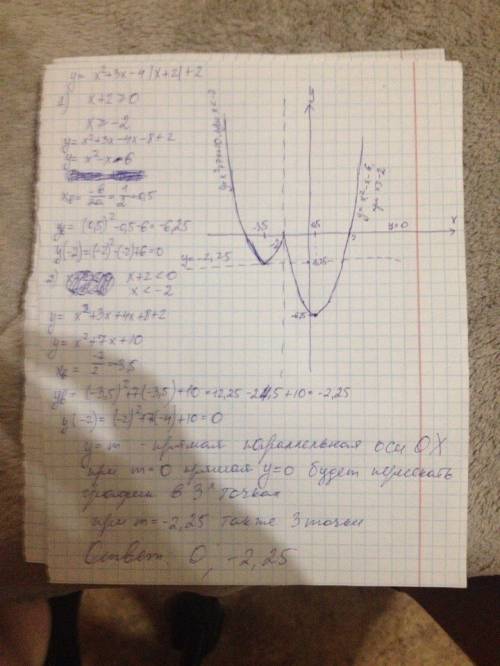 y = x²+3x-4|x+2|+2
1) x+2≥0
x≥-2
y=x²+3x-4x-8+2
y=x²-x-6
x₆= -b/2a = 1/2 = 0,5
y₆=(0,5)²-0,5-6=-6,25
y(-2)=(-2)²-(-2)+6=0
2) x+2<0
x<-2
y= x²+3x+4x+8+2
y= x²+7x+10
x₆= -7/2 = -3,5
y₆= (-3,5)²+7(-3,5)+10=12,25-24,5+10=-2,25
y(-2)=(-2)²+7(-4)+10=0
y=m - прямая параллельная оси OX
при m=0 прямая y=0 будет пересекать
график в 3ˣ точках
при m=-2,25 также 3 точки
Ответ: 0, -2,25
-3,5
-2
0,5
3
y=0
x
y=-2,25
-2,25
-6,25
y=x²-x-6